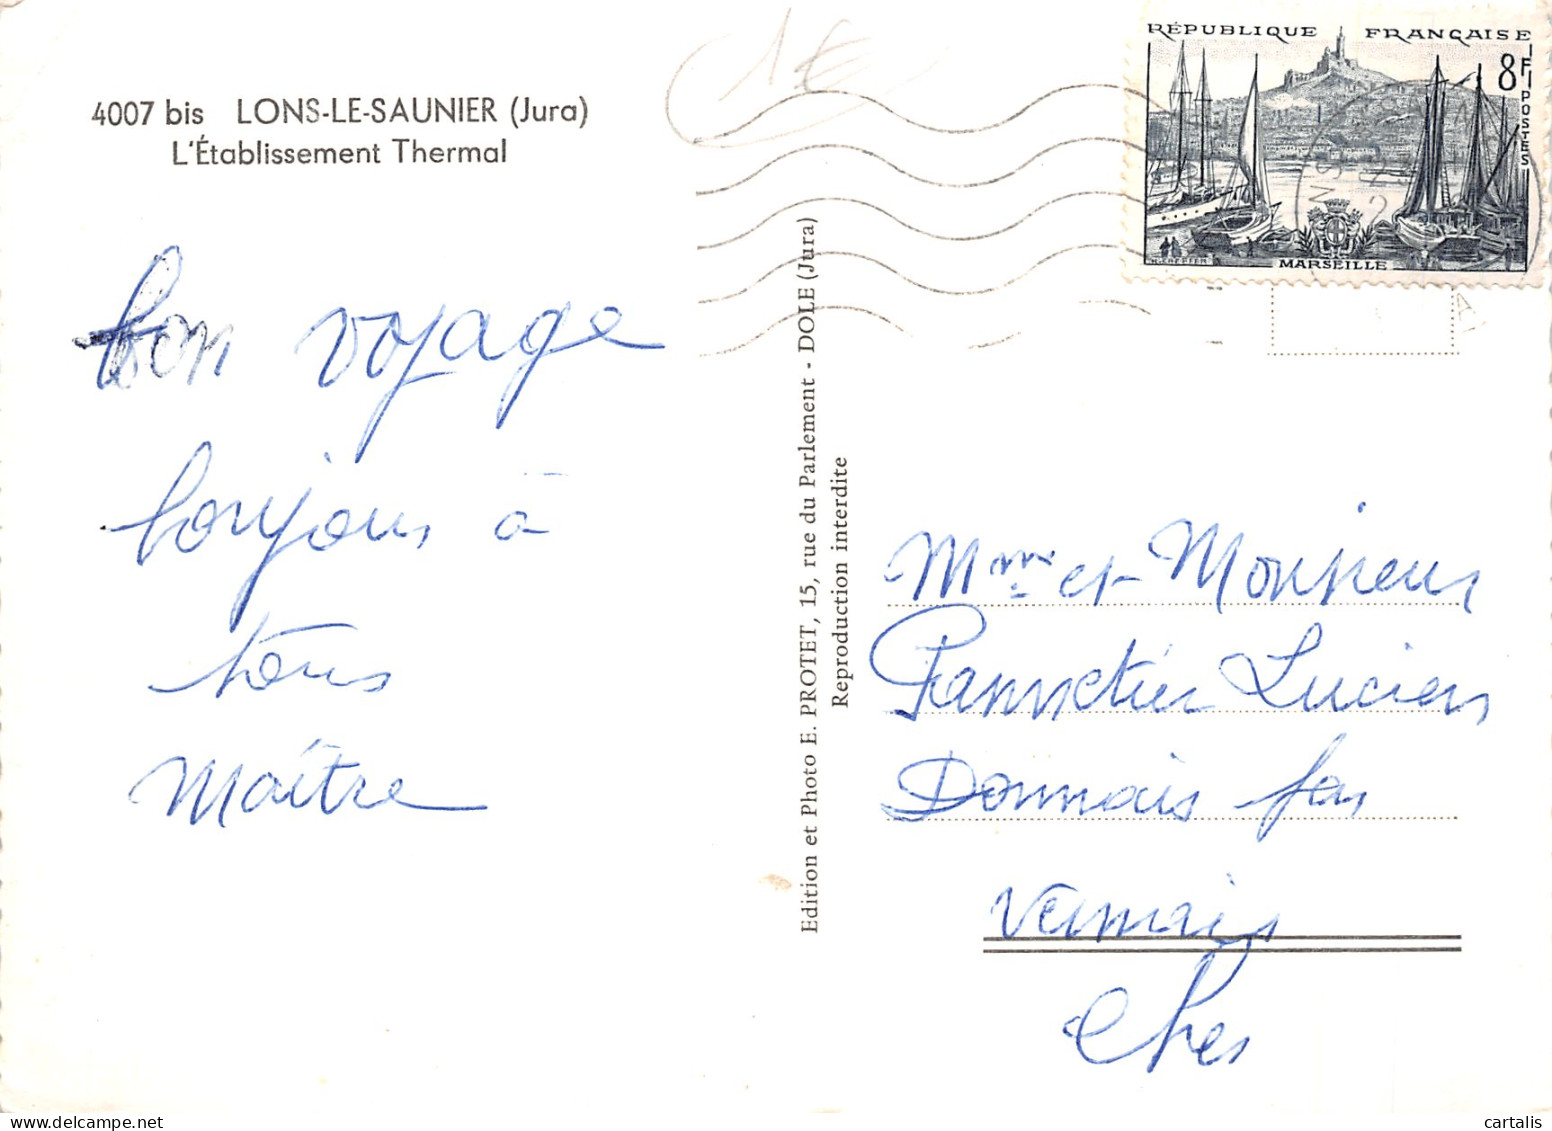 4007 bis LONS-LE-SAUNIER (Jura)
L'Établissement Thermal
1€
RÉPUBLIQUE FRANÇAISE
8F
POSTES
MARSEILLE
bon voyage
bonjour à
tous
Maître
Edition et Photo E. PROTET, 15, rue du Parlement - DOLE (Jura)
Reproduction interdite
Mme et Monsieur
Pannetier Lucien
Donnais par
Vernais
Cher
cartalis